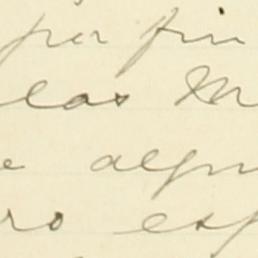 por fin
las M
e algu
ro esp